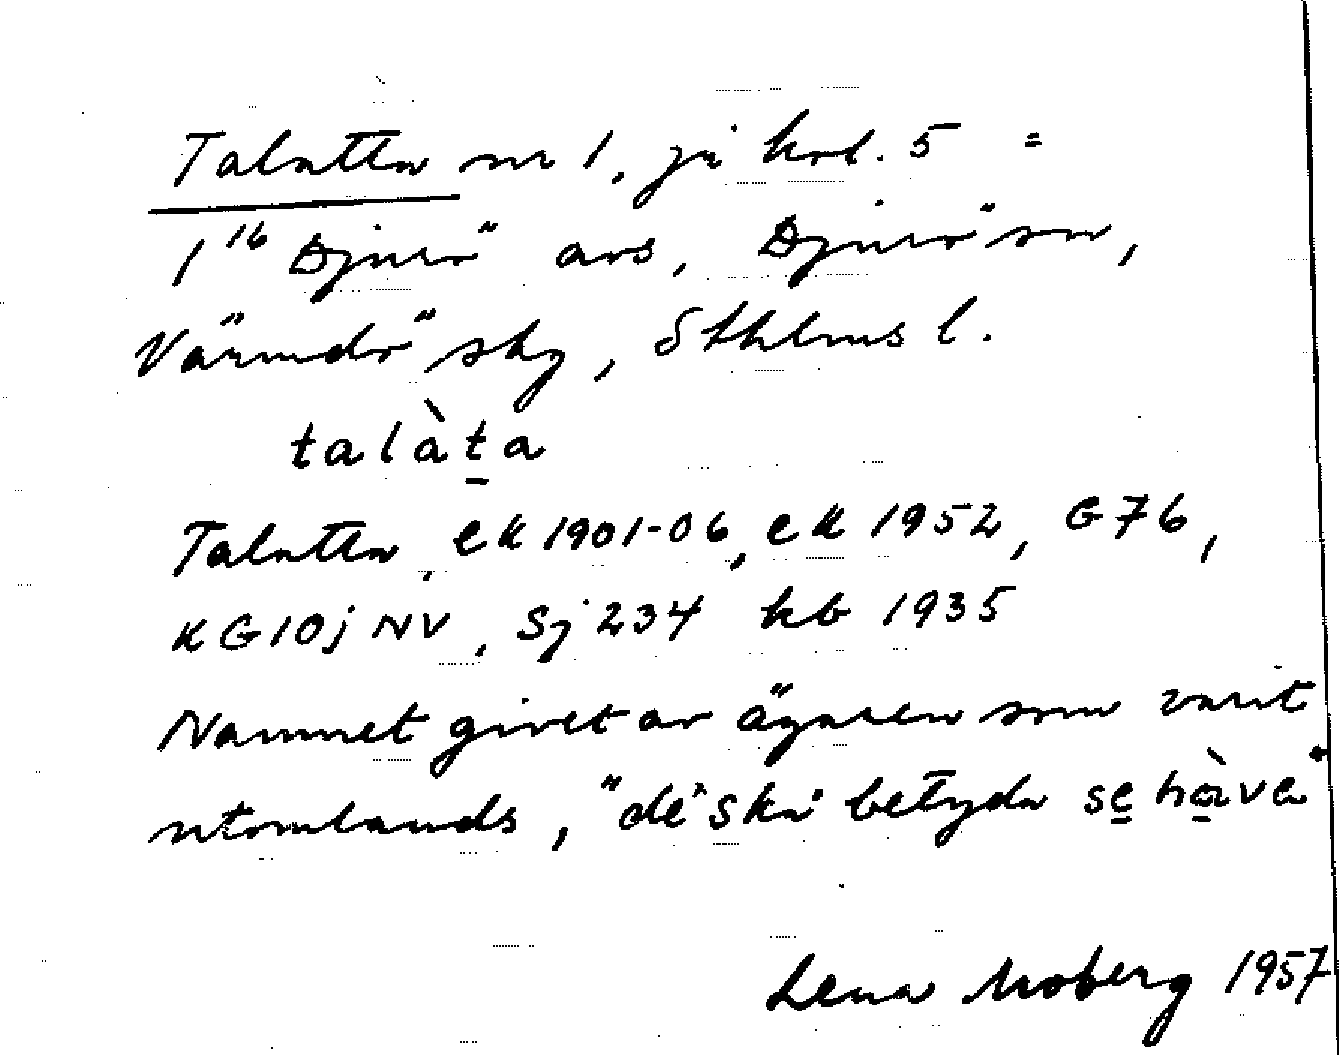 Talatta nr 1, på krt. 5 =
1¹⁶ Djurö avs, Djurö sn,
Värmdö skg, Sthlms l.
talàta
Talatta, ek 1901-06, ek 1952, G 76,
KG10j NV, Sj 234 kb 1935
Namnet givet av ägaren som varit
utomlands, "de ska betyda se hàve"
Lena Moberg 1957